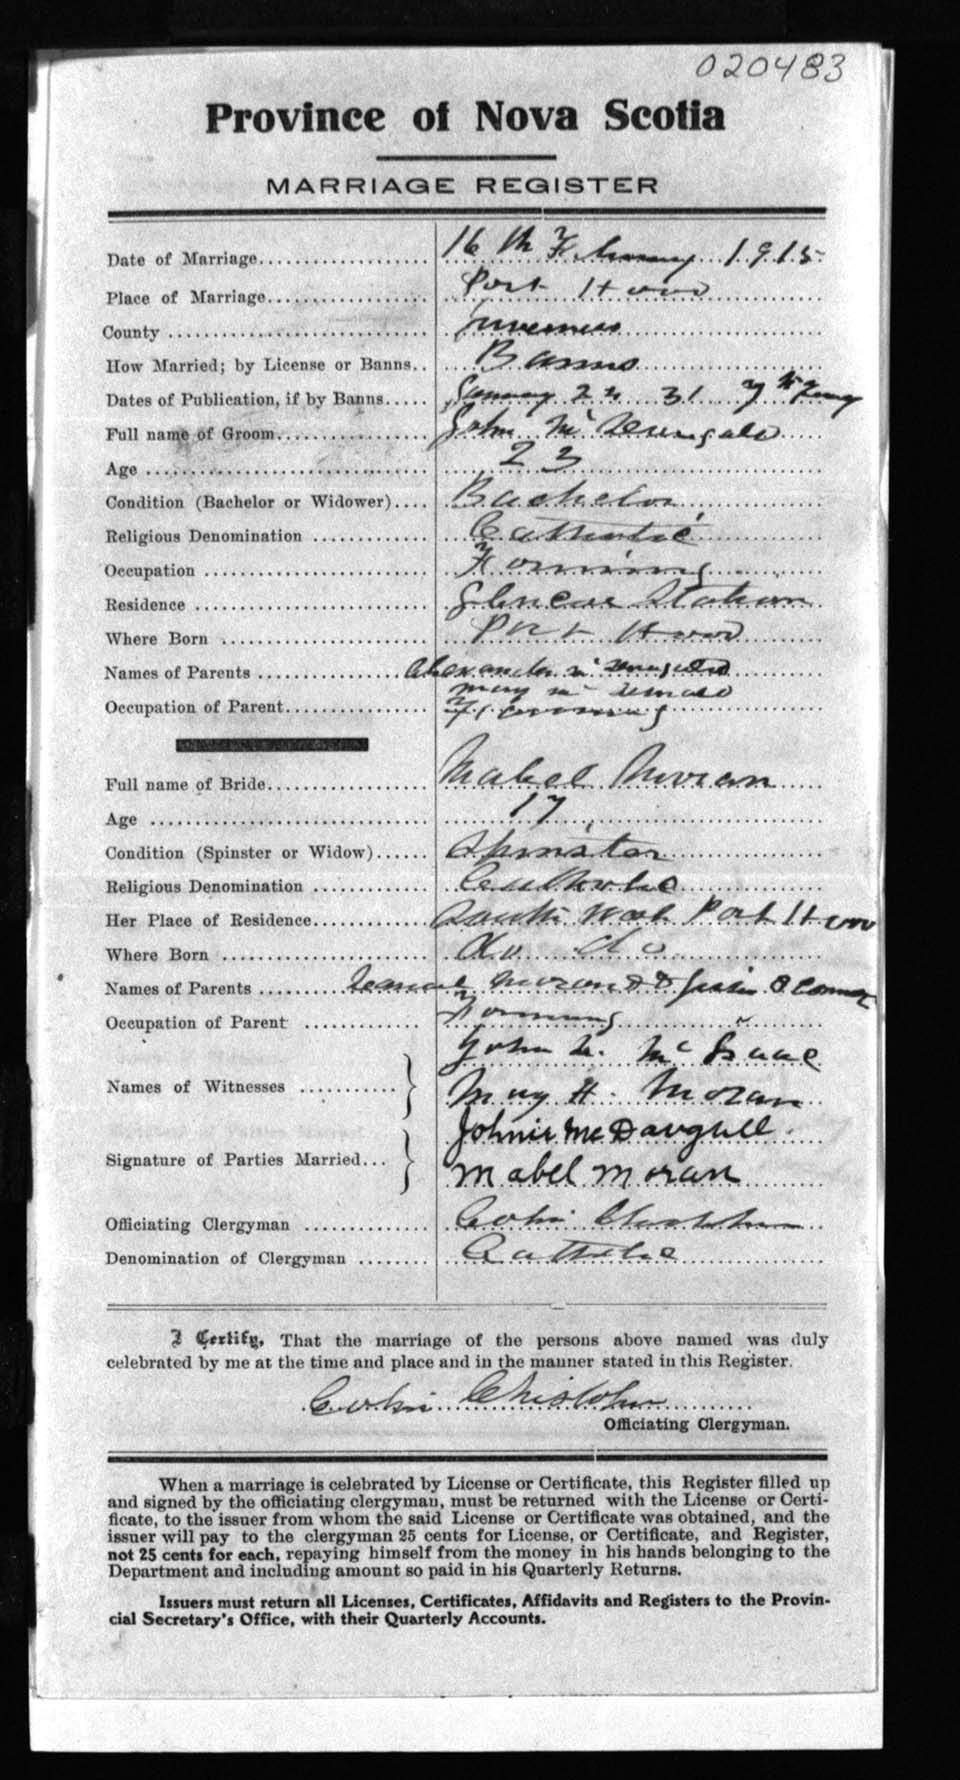 020483
Province of Nova Scotia
MARRIAGE REGISTER
Date of Marriage 16th February 1915
Place of Marriage Port Hood
County Inverness
How Married; by License or Banns Banns
Dates of Publication, if by Banns January 24 31 7th
Full name of Groom John Mc Dougald
Age 23
Condition (Bachelor or Widower) Bachelor
Religious Denomination Catholic
Occupation Farming
Residence Glencoe Station
Where Born Port Hood
Names of Parents Alexander Mc Dougald
Mary Mc
Occupation of Parent Farming
Full name of Bride Mabel Moran
Age 17
Condition (Spinster or Widow) Spinster
Religious Denomination Catholic
Her Place of Residence South West Port Hood
Where Born do do
Names of Parents Moran & Jessie O Connor
Occupation of Parent Farming
John Mc Isaac
Names of Witnesses
Mary H. Moran
Johnie McDougall
Signature of Parties Married
Mabel Moran
Officiating Clergyman Colin Chisholm
Denomination of Clergyman Catholic
I Certify, That the marriage of the persons above named was duly
celebrated by me at the time and place and in the manner stated in this Register.
Colin Chisholm
Officiating Clergyman.
When a marriage is celebrated by License or Certificate, this Register filled up
and signed by the officiating clergyman, must be returned with the License or Certi-
ficate, to the issuer from whom the said License or Certificate was obtained, and the
issuer will pay to the clergyman 25 cents for License, or Certificate, and Register,
not 25 cents for each, repaying himself from the money in his hands belonging to the
Department and including amount so paid in his Quarterly Returns.
Issuers must return all Licenses, Certificates, Affidavits and Registers to the Provin-
cial Secretary's Office, with their Quarterly Accounts.